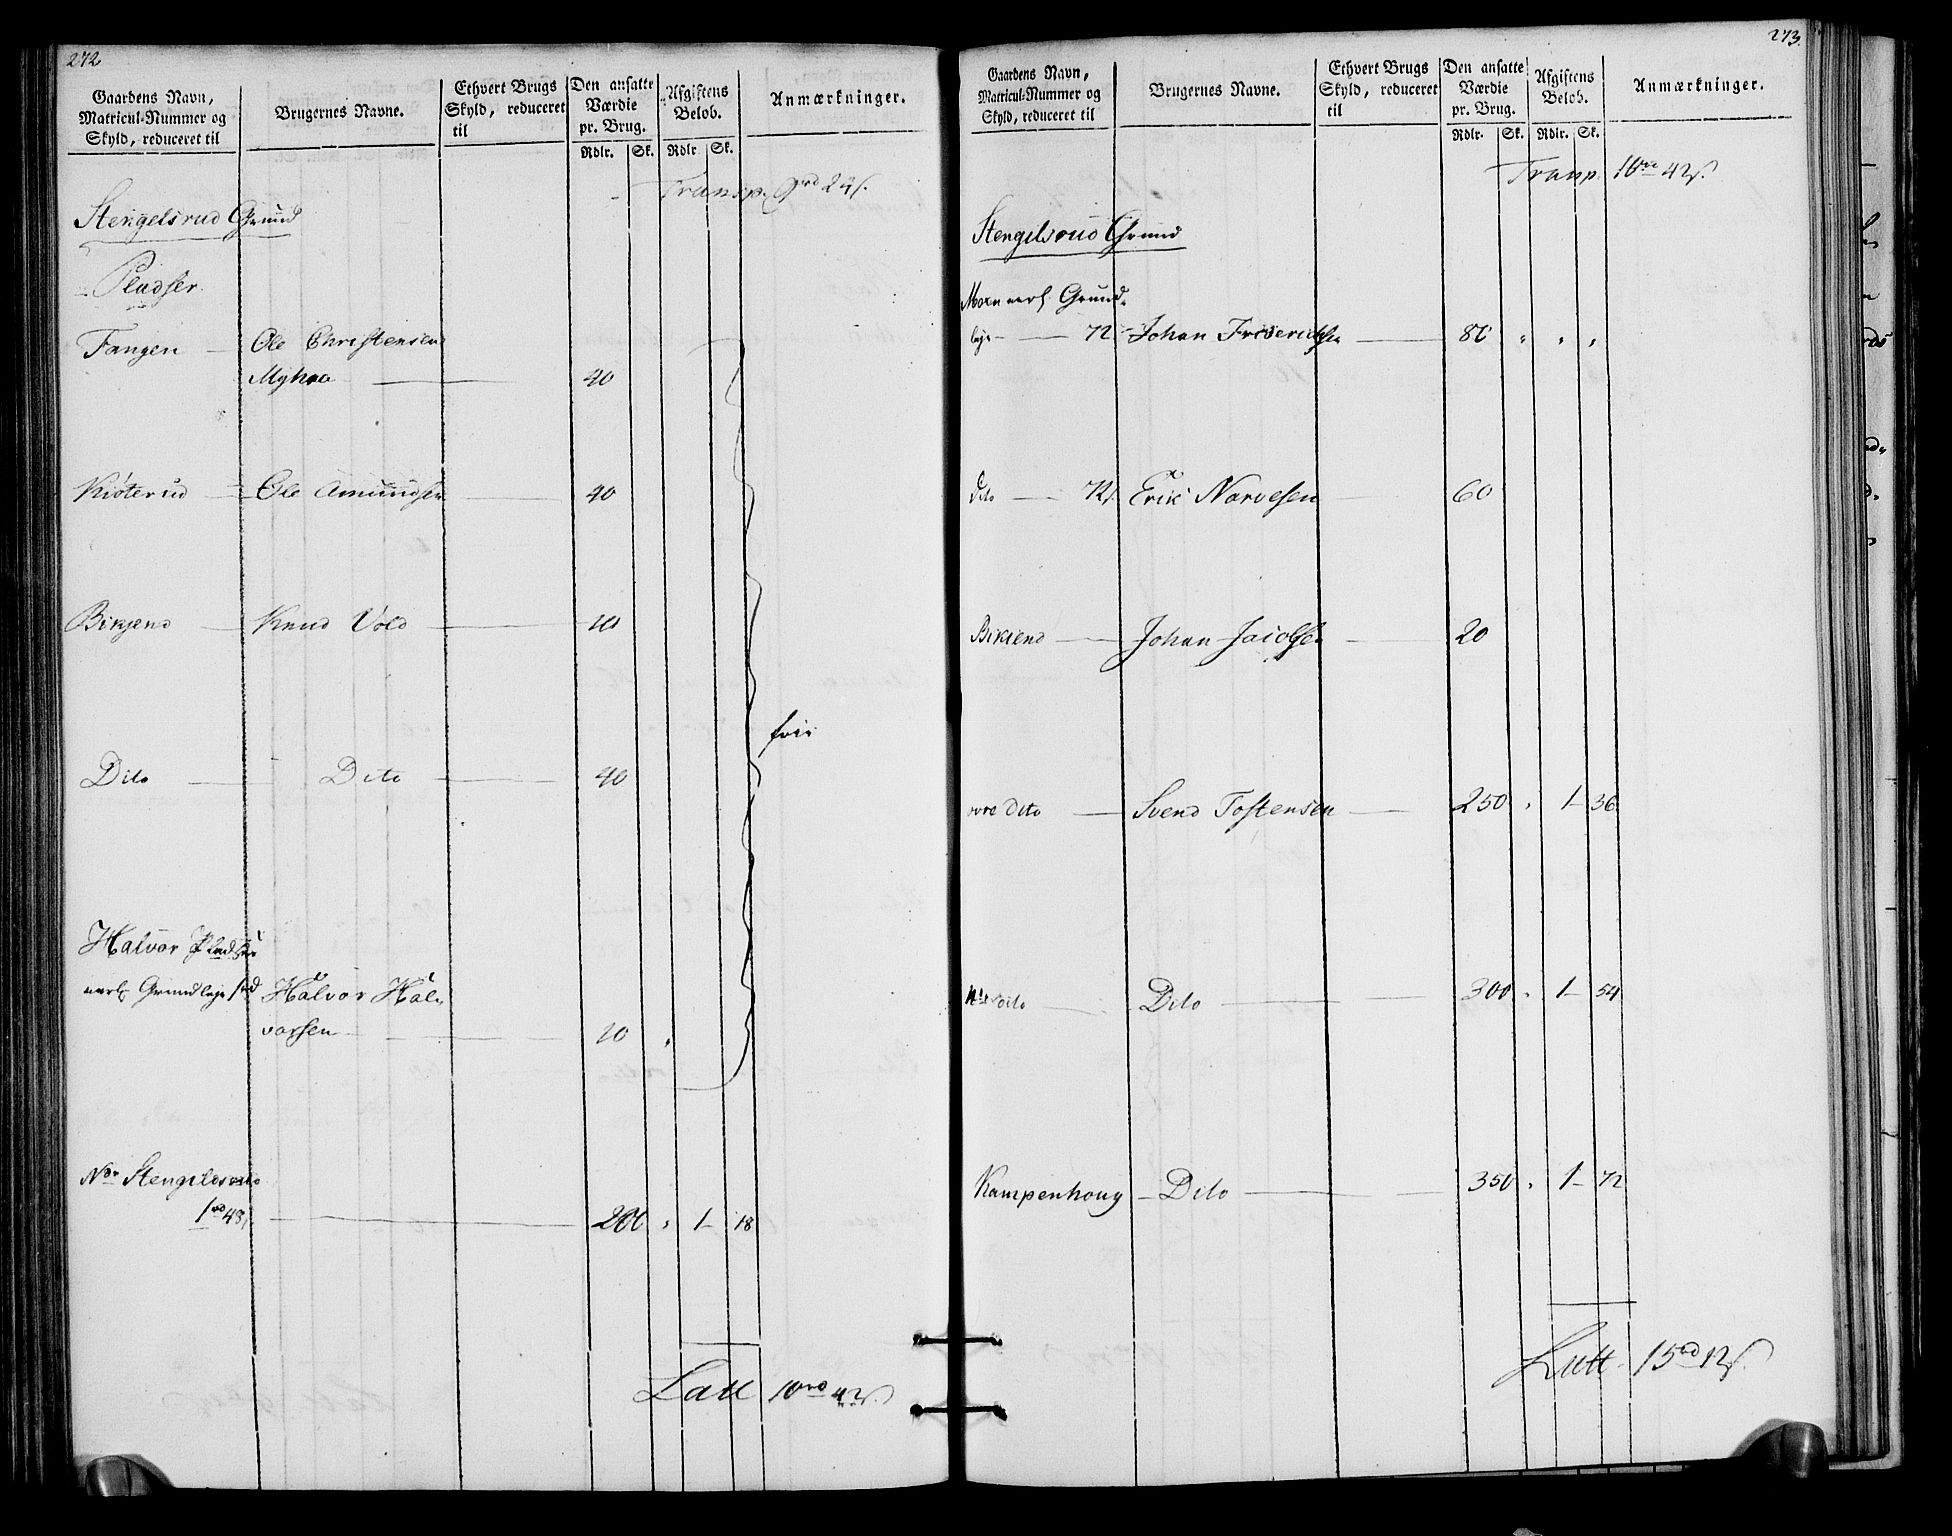 272
Gaardens Navn, Matricul-Nummer og Skyld, reduceret til
Brugernes Navne.
Ethvert Brugs Skyld, reduceret til
Den ansatte Værdie pr. Brug.
Rdlr. Sk.
Afgiftens Beløb.
Rdlr Sk.
Anmærkninger.
Transp. 9rd 24s.
Stengelsrud Grund
Pladser
Tangen Ole Christensen
Myhra 40
Kiøterud Ole Amundsen 40
Bikjend Knud Vold 10
frie
Dito Dito 40
Halvor Pladsen
aarl Grundleje Halvor Hal-
vorsen 10 "
Nor Stengelsrud
1rd 48s 200 " 1 18
Latt 10rd 42s.
273.
Gaardens Navn, Matricul-Nummer og Skyld, reduceret til
Brugernes Navne.
Ethvert Brugs Skyld, reduceret til
Den ansatte Værdie pr. Brug.
Rdlr. Sk.
Afgiftens Beløb.
Rdlr. Sk.
Anmærkninger.
Transp. 10rd 42s.
Stengelsrud Grund
aarl Grund-
leje 72 Johan Friderichsen 80 " " "
Dito 72s Erik Narvesen 60
Bikiend Johan Jacobsen 20
øvre Dito Svend Tostensen 250 " 1 36
Dito Dito 300 " 1 54
Kampenhoug Dito 350 " 1 72
Latt 15rd 12s.